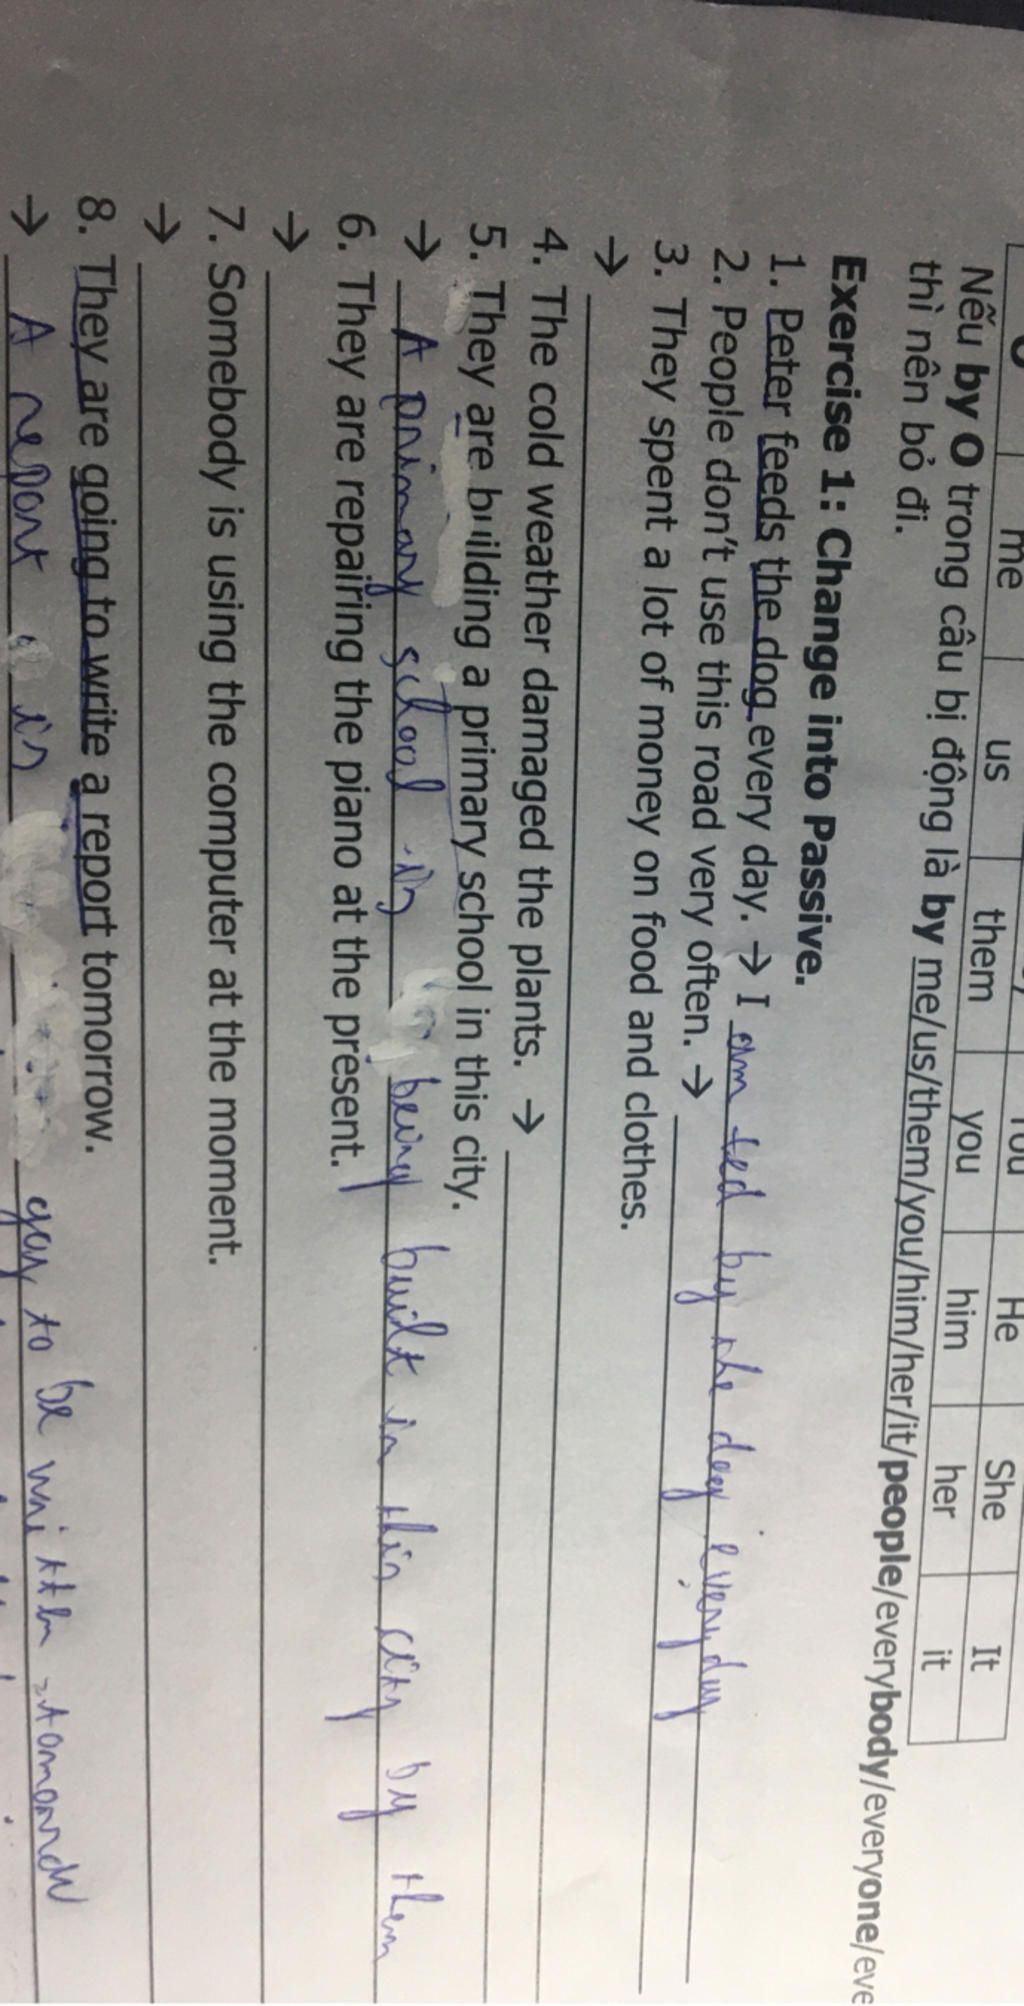 You He She It
me us them you him her it
Nếu by O trong câu bị động là by me/us/them/you/him/her/it/people/everybody/everyone/eve
thì nên bỏ đi.
Exercise 1: Change into Passive.
1. Peter feeds the dog every day. → I am fed by the dog every day
2. People don't use this road very often. →
3. They spent a lot of money on food and clothes.
→
4. The cold weather damaged the plants. →
5. They are building a primary school in this city.
→ A primary school is being built in this city by them
6. They are repairing the piano at the present.
→
7. Somebody is using the computer at the moment.
→
8. They are going to write a report tomorrow.
→ A report is to be written tomorrow